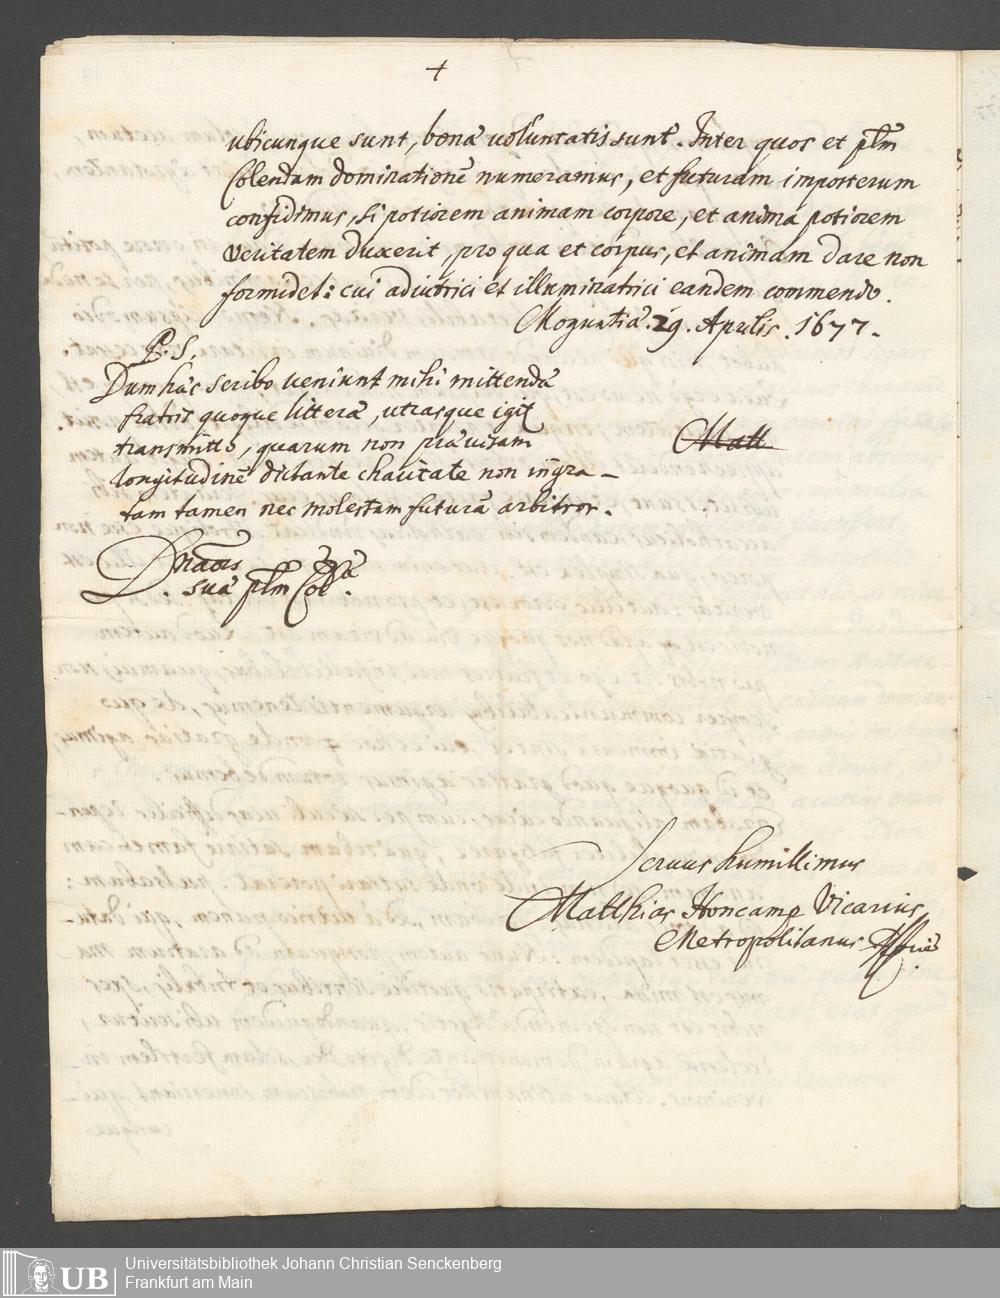 +
ubicunque sunt, bonæ voluntatis sunt. Inter quos et plm̄
Colendam dominationē numeramus, et futuram imposterum
confidimus, si potiorem animam corpore, et animâ potiorem
veritatem duxerit, pro qua et corpus, et animam dare non
formidet: cui adiutrici et illuminatrici eandem commendo.
Moguntiæ. 29. Aprilis. 1677.
P. S.
Dum hæc scribo veniunt mihi mittendæ
fratris quoque litteræ, utrasque igit
transmitto, quarum non prævisam
longitudinē dictante charitate non ingra-
tam tamen nec molestam futurā arbitror.
Matt
D. nāois
suæ plm̄ Col.
Servus humillimus
Matthias Honcamp Vicarius
Metropolitanus
Universitätsbibliothek Johann Christian Senckenberg
Frankfurt am Main
UB